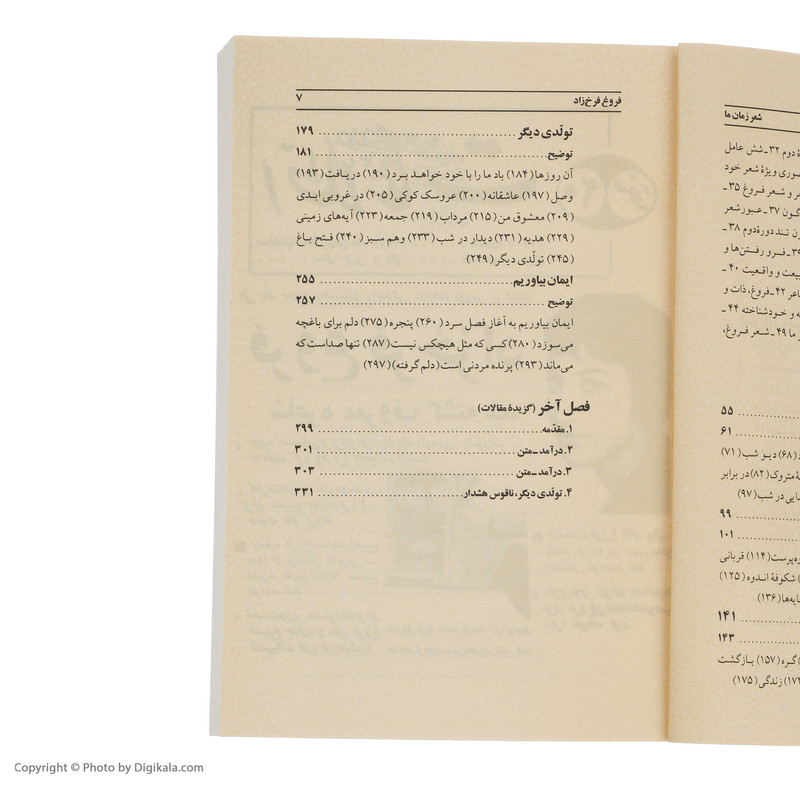 شعر زمان ما
دوم ۳۲ـ شش عامل
ویژهٔ شعر خود
و شعر فروغ ۳۵ ـ
گون ۳۷ ـ عبور شعر
تند دورهٔ دوم ۳۸ ـ
فرو رفتن‌ها و
و واقعیت ۴۰ ـ
۴۲ ـ فروغ، ذات و
و خودشناخته ۴۴ ـ
ما ۴۹ ـ شعر فروغ،
۵۵
۶۱
(۶۸) دیو شب (۷۱)
متروک (۸۲) در برابر
در شب (۹۷)
۹۹
۱۰۱
(۱۱۴) قربانی
شکوفهٔ اندوه (۱۲۵)
(۱۳۶)
۱۴۱
۱۴۳
گره (۱۵۷) بازگشت
زندگی (۱۷۵)
فروغ فرخ‌زاد ۷
تولّدی دیگر ........ ۱۷۹
توضیح ........ ۱۸۱
آن روزها (۱۸۴) باد ما را با خود خواهد برد (۱۹۰) دریافت (۱۹۳)
وصل (۱۹۷) عاشقانه (۲۰۰) عروسک کوکی (۲۰۵) در غروبی ابدی
(۲۰۹) معشوق من (۲۱۵) مرداب (۲۱۹) جمعه (۲۲۳) آیه‌های زمینی
(۲۲۹) هدیه (۲۳۱) دیدار در شب (۲۳۳) وهم سبز (۲۴۰) فتح باغ
(۲۴۵) تولّدی دیگر (۲۴۹)
ایمان بیاوریم ........ ۲۵۵
توضیح ........ ۲۵۷
ایمان بیاوریم به آغاز فصل سرد (۲۶۰) پنجره (۲۷۵) دلم برای باغچه
می‌سوزد (۲۸۰) کسی که مثل هیچکس نیست (۲۸۷) تنها صداست که
می‌ماند (۲۹۳) پرنده مردنی است (دلم گرفته) (۲۹۷)
فصل آخر (گزیدهٔ مقالات)
۱. مقدّمه ........ ۲۹۹
۲. درآمد ـ متن ........ ۳۰۱
۳. درآمد ـ متن ........ ۳۰۳
۴. تولّدی دیگر، ناقوس هشدار ........ ۳۳۱
Copyright © Photo by Digikala.com